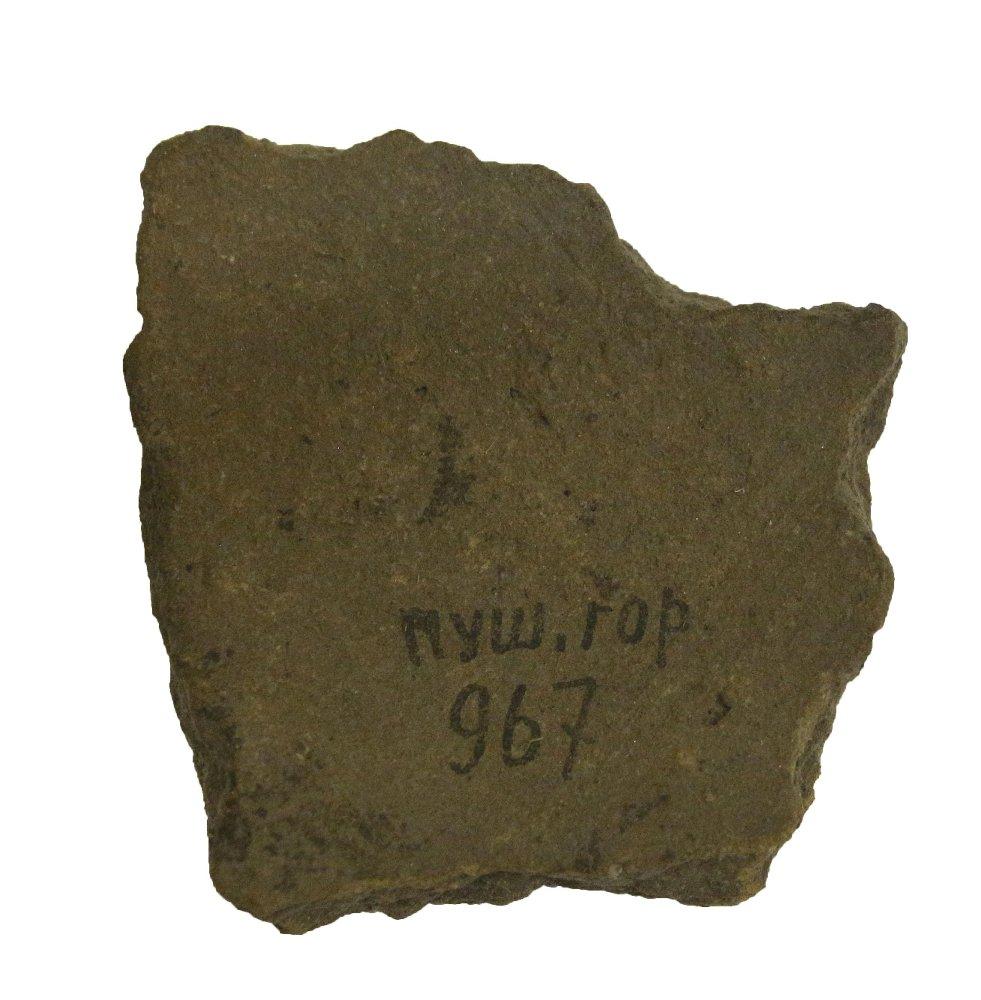 пуш. гор.
967